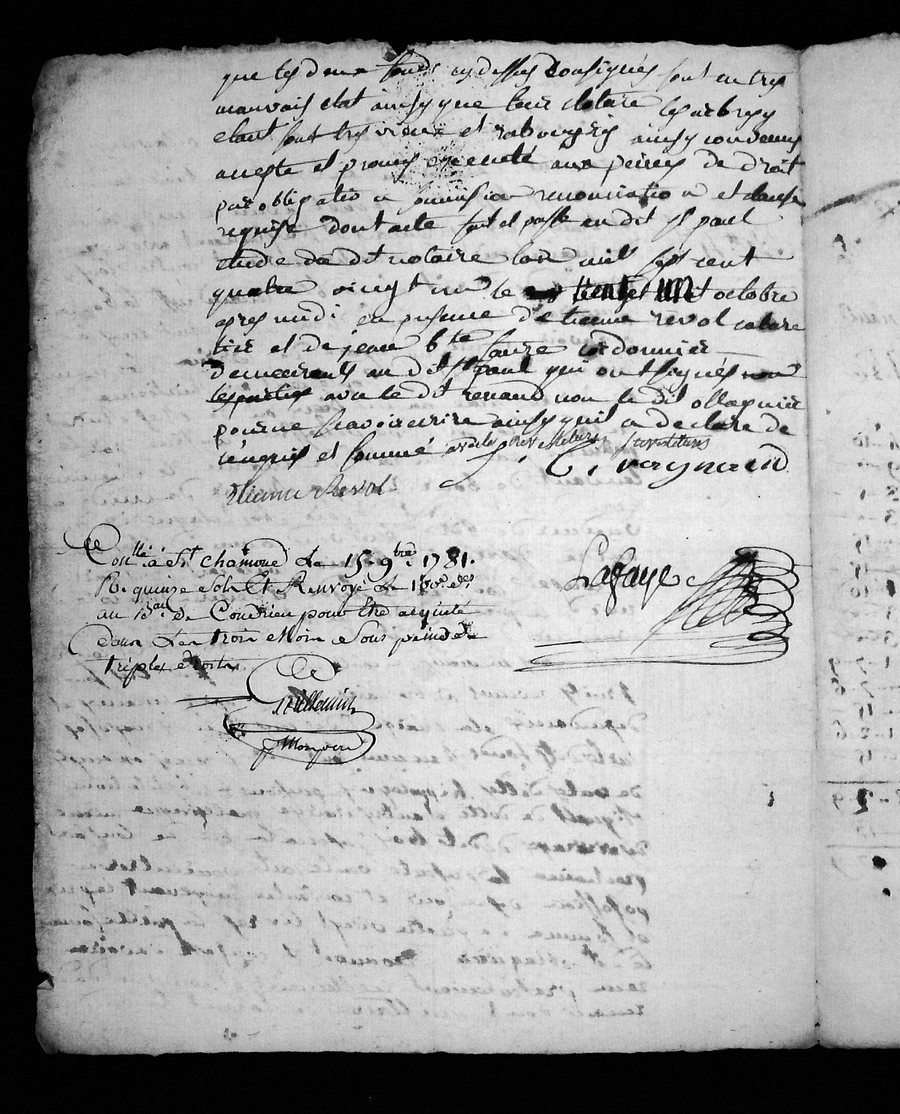 que les deux fonds cy dessus Consignés sont en tres
mauvais etat ainsy que leur cloture les arbres y
etant sont tres vieux et rabougris ainsy convenus
areste et promis executé aux peines de droit
par obligation soumission renonciation et clause
requise dont acte fait et passé au dit St paul
etude du dit notaire lan mil sept cent
quatre vingt un le trente un octobre
apres midi en presence d'etienne revol cabare
tier et de jean bte faure cordonnier
demeurants au dit St paul qui ont signés
avec le dit renaud non le dit ollagnier
pour ne scavoir ecrire ainsy quil a declaré de
ce enquis et sommé
C. reymand
Etienne Revol
Con.llé à St chamond Le 15 9bre 1781.
R. quinze sols Et Renvoyé Le
au de Condrieu pour être acquitté
dans Les trois mois sous peine de
triples droits
Lafaye
Guillemin